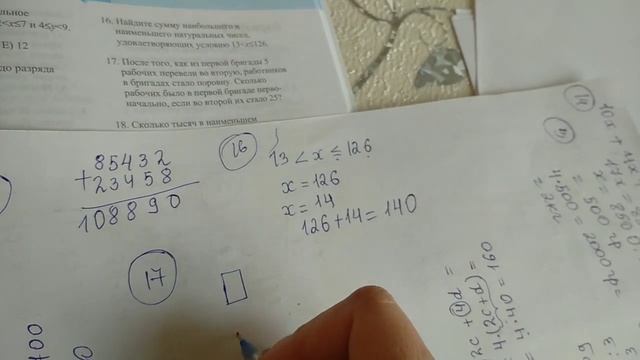 льное
<x≤7 и 4≤y<9.
Е) 12
до разряда
16. Найдите сумму наибольшего и
наименьшего натуральных чисел,
удовлетворяющих условию 13<x≤126.
17. После того, как из первой бригады 5
рабочих перевели во вторую, работников
в бригадах стало поровну. Сколько
рабочих было в первой бригаде перво-
начально, если во второй их стало 25?
18. Сколько тысяч в наименьшем
85432
+23458
108890
16
13 < x ≤ 126
x = 126
x = 14
126 + 14 = 140
17
2c + 4d =
4(2c + d) =
= 4·40 = 160